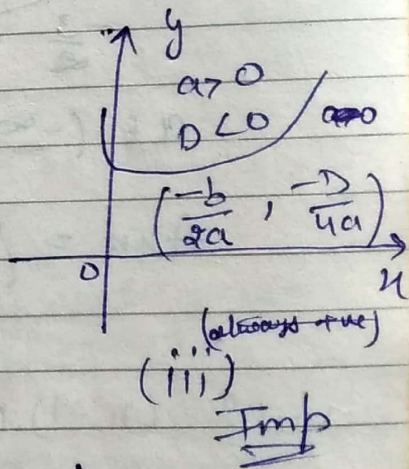 y
a > 0
D < 0
(-b/2a , -D/4a)
0
x
(always +ve)
(iii)
Imp